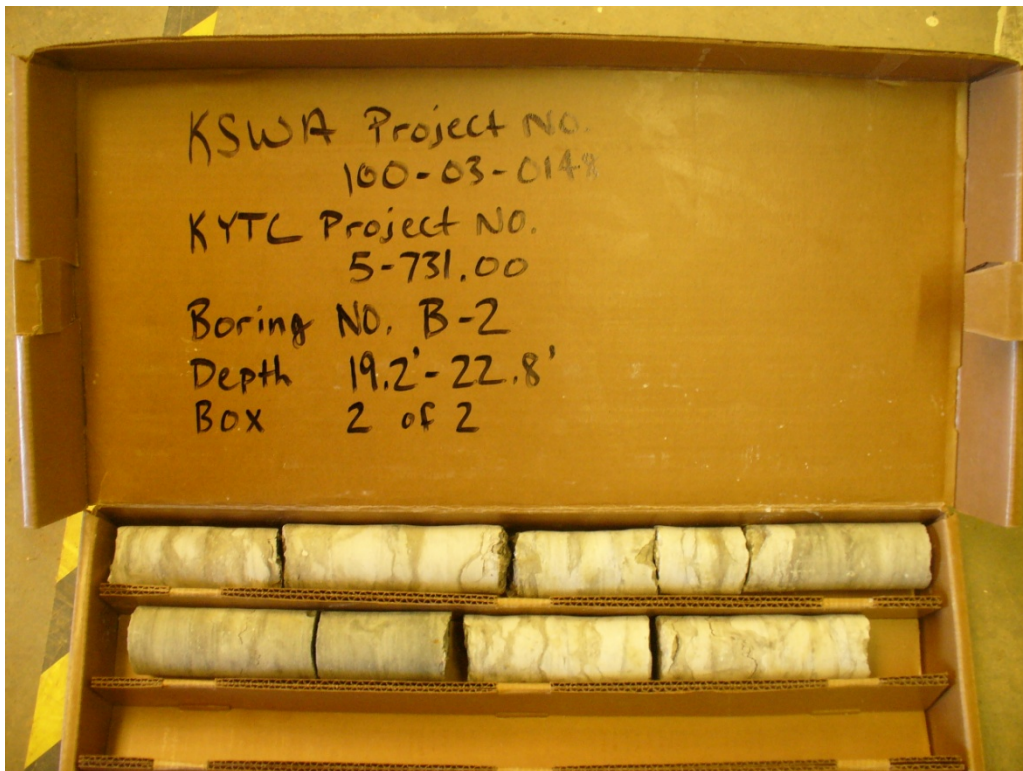 KSWA Project No.
100-03-0148
KYTC Project No.
5-731.00
Boring No. B-2
Depth 19.2'-22.8'
Box 2 of 2